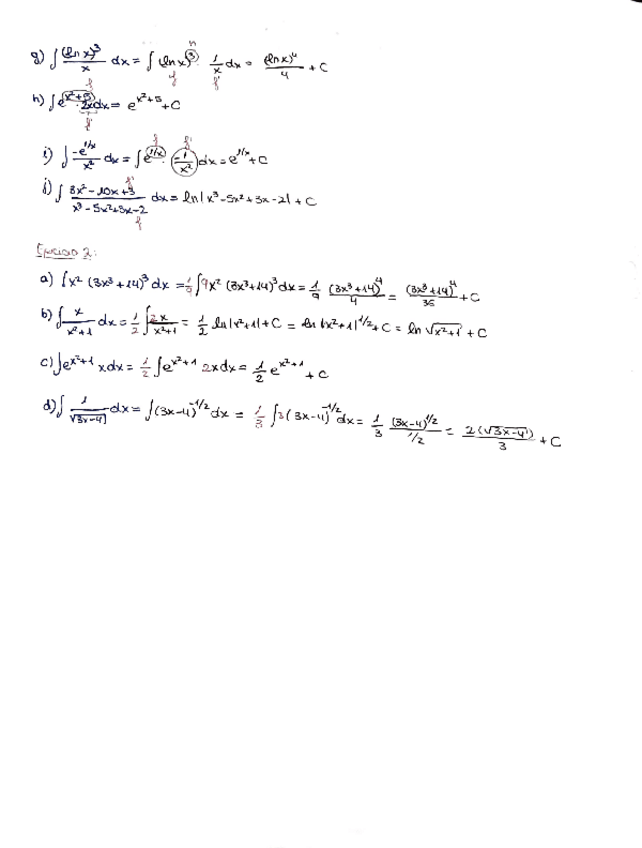 g) ∫ (ln x)³/x dx = ∫ (ln x)³ · 1/x dx = (ln x)⁴/4 + C
n
f f'
h) ∫ e^(x²+5) · 2x dx = e^(x²+5) + C
f'
f f'
i) ∫ -e^(1/x)/x² dx = ∫ e^(1/x) · -1/x² dx = e^(1/x) + C
f'
j) ∫ (3x² - 10x + 3)/(x³ - 5x² + 3x - 2) dx = ln|x³ - 5x² + 3x - 2| + C
f
Ejercicio 2:
a) ∫ x² (3x³+14)³ dx = 1/9 ∫ 9x² (3x³+14)³ dx = 1/9 (3x³+14)⁴/4 = (3x³+14)⁴/36 + C
b) ∫ x/(x²+1) dx = 1/2 ∫ 2x/(x²+1) = 1/2 ln|x²+1| + C = ln|x²+1|^(1/2) + C = ln √(x²+1) + C
c) ∫ e^(x²+1) x dx = 1/2 ∫ e^(x²+1) 2x dx = 1/2 e^(x²+1) + C
d) ∫ 1/√(3x-4) dx = ∫ (3x-4)^(-1/2) dx = 1/3 ∫ 3(3x-4)^(-1/2) dx = 1/3 (3x-4)^(1/2)/(1/2) = 2(√(3x-4))/3 + C